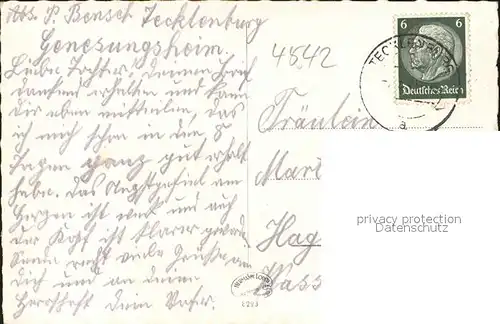 Abs. P. Bensch Tecklenburg
Genesungsheim.
Liebe Tochter, Deinen Brief
dankend erhalten und kann
dir eben mitteilen, das
ich mich schon in den 8
Tagen ganz gut erholt
habe. Das Angstgefühl am
Herzen ist weg und auch
der Kopf ist klarer
Sende recht viele Grüße an
Dich und an deine
Herrschaft Dein Vater.
4542
6 6
Deutsches Reich
TECKLENBURG
a
Fräulein
Mar
Hag
privacy protection
Datenschutz